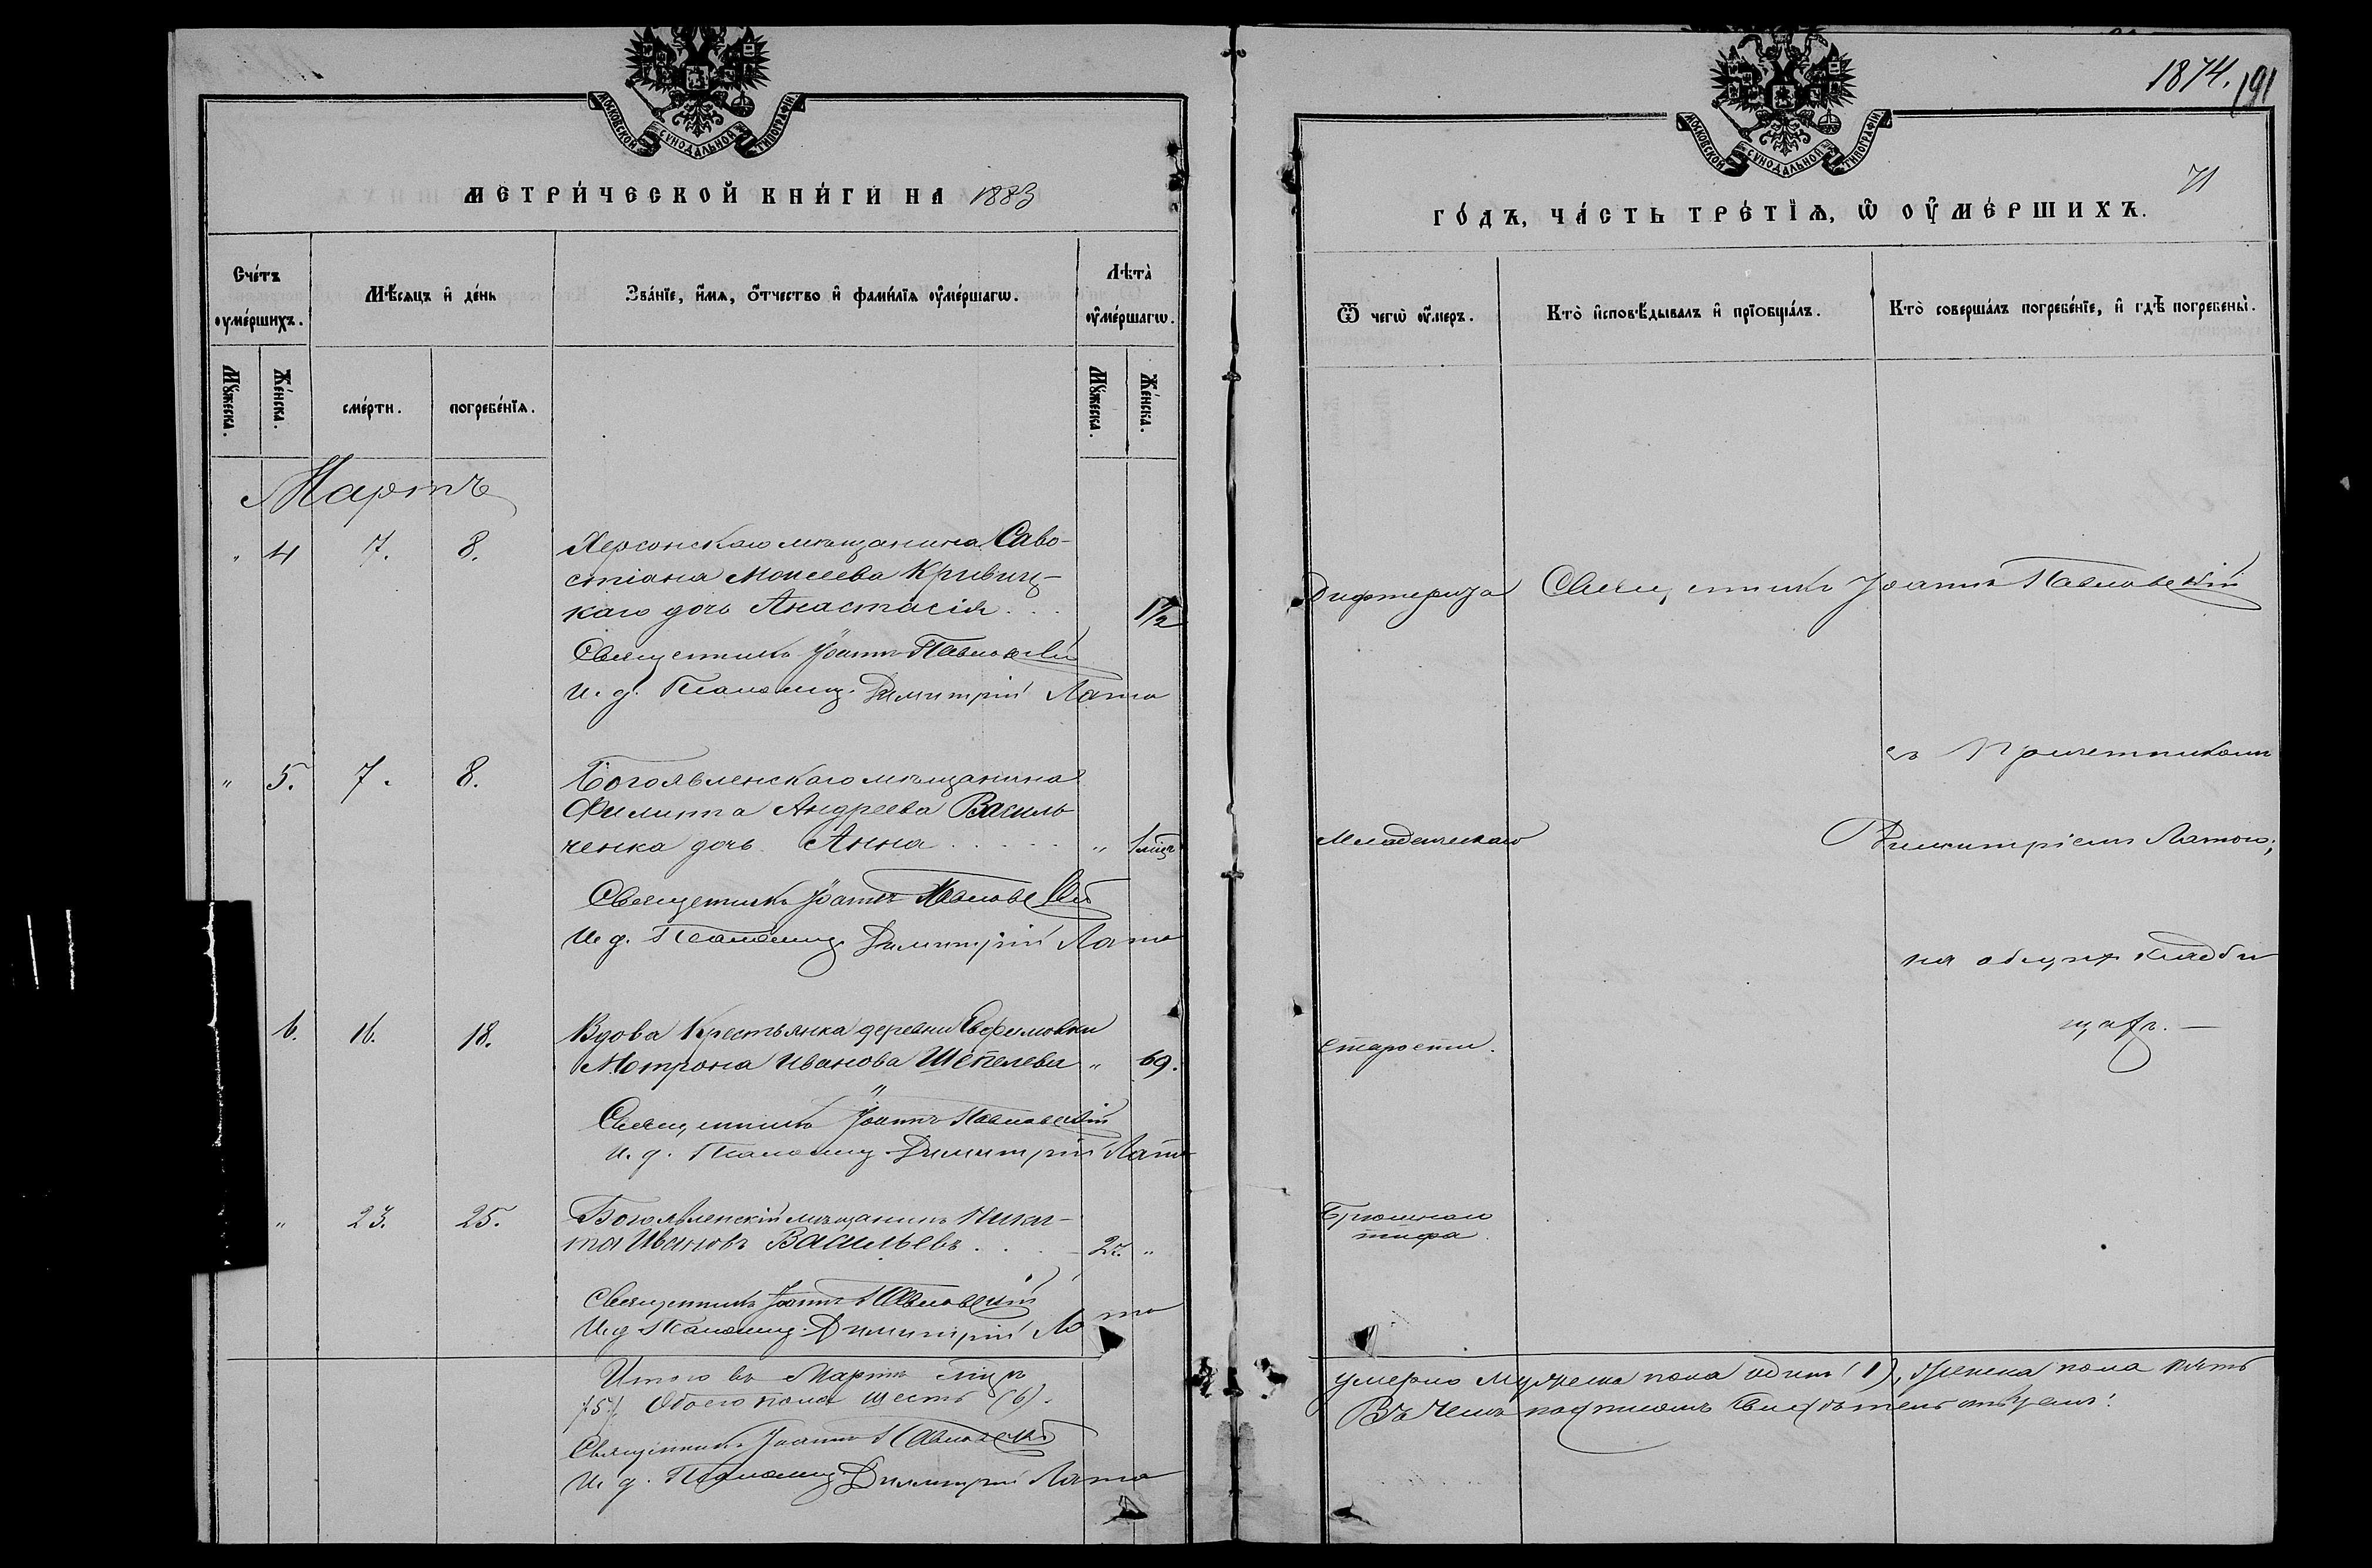 МОСКОВСКОЙ СѴНОДАЛЬНОЙ ТИПОГРАФІИ
МЕТРИ́ЧЕСКОЙ КНИ́ГИ НА 1883
Сче́тъ ᲂу҆ме́ршихъ.
Мѣ́сяцъ и҆ де́нь
Зва́нїе, и҆́мѧ, ѻ҆́тчество и҆ фами́лїѧ ᲂу҆ме́ршагѡ.
Лѣта̀ ᲂу҆ме́ршагѡ.
Мꙋ́жеска.
Же́нска.
сме́рти.
погребе́нїѧ.
Мꙋ́жеска.
Же́нска.
Мартъ
" 4 7. 8. Херсонскаго мѣщанина Саво-
стіана Моисеева Кривиц-
каго дочь Анастасія . . . 1½
Священникъ Іоаннъ Павловскій
И. д. Псаломщ. Димитрій Лата
" 5. 7. 8. Богоявленскаго мѣщанина
Филиппа Андреева Василь
ченка дочь Анна . . . . . " 1 мѣц.
Священникъ Іоаннъ Павловскій
И. д. Псаломщ. Димитрій Лата
6. 16. 18. Вдова Крестьянка деревни Ефимовки
Матрона Иванова Шепелева " 69.
Священникъ Іоаннъ Павловскій
И. д. Псаломщ. Димитрій Лата
" 23. 25. Богоявленскій мѣщанинъ Ники-
та Ивановъ Васильевъ . . . 27. "
Священникъ Іоаннъ Павловскій
И. д. Псаломщ. Димитрій Лата
Итого въ Мартѣ мцѣ
/5/, Обоего пола шесть (6).
Священникъ Іоаннъ Павловскій
И. д. Псаломщ. Димитрій Лата
1874. 191
МОСКОВСКОЙ СѴНОДАЛЬНОЙ ТИПОГРАФІИ
71
ГО́ДЪ, ЧА́СТЬ ТРЕ́ТЇѦ, Ѡ҆ ОУ҆МЕ́РШИХЪ.
Ѿ чегѡ̀ ᲂу҆́меръ.
Кто̀ и҆сповѣ́дывалъ и҆ прїобща́лъ.
Кто̀ соверша́лъ погребе́нїе, и҆ гдѣ̀ погребены̀.
Дифтерита Священникъ Іоаннъ Павловскій
съ Причетникомъ
Младенческаго Димитріемъ Латою;
на общемъ кладби
щѣ. —
старости.
Брюшнаго
тифа.
умерло мужеска пола одинъ (1), женска пола пять
Въ чемъ подписомъ свидѣтельствуемъ: